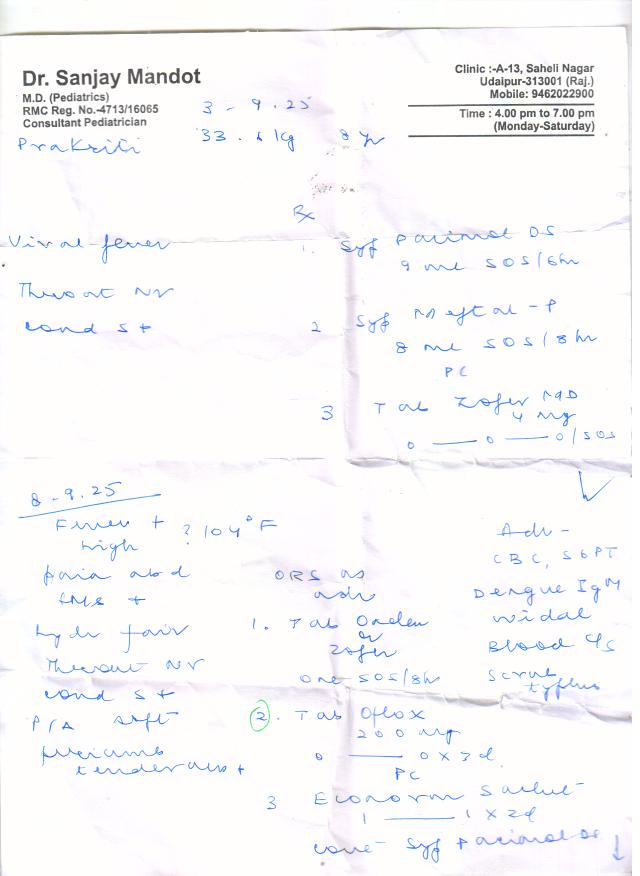 Dr. Sanjay Mandot
M.D. (Pediatrics)
RMC Reg. No.-4713/16065
Consultant Pediatrician
Clinic :-A-13, Saheli Nagar
Udaipur-313001 (Raj.)
Mobile: 9462022900
Time : 4.00 pm to 7.00 pm
(Monday-Saturday)
3 - 9.25
Prakriti 33. kg 8 yr
Rx
Viral fever
Throat NV
cond S +
1. Syp Pacimol DS
9 ml SOS/6hr
2 Syp Meftal-P
8 ml SOS/8hr
PC
3 Tab Zofer MD
4 mg
0 — 0 — 0/SOS
8-9.25
Fever + ? 104°F
high
pain abd
+
Hydr fair
Throat NV
cond S +
P/A soft
tenderness +
ORS as
adv
1. Tab Ondem
or
Zofer
one SOS/8h
2. Tab Oflox
200 mg
0 — 0 x 3d
PC
3 Econorm Sachet
1 — 1 x 2d
cont Syp Pacimol DS ↓
Adv -
CBC, SGPT
Dengue IgM
Widal
Blood C/S
Scrub
typhus